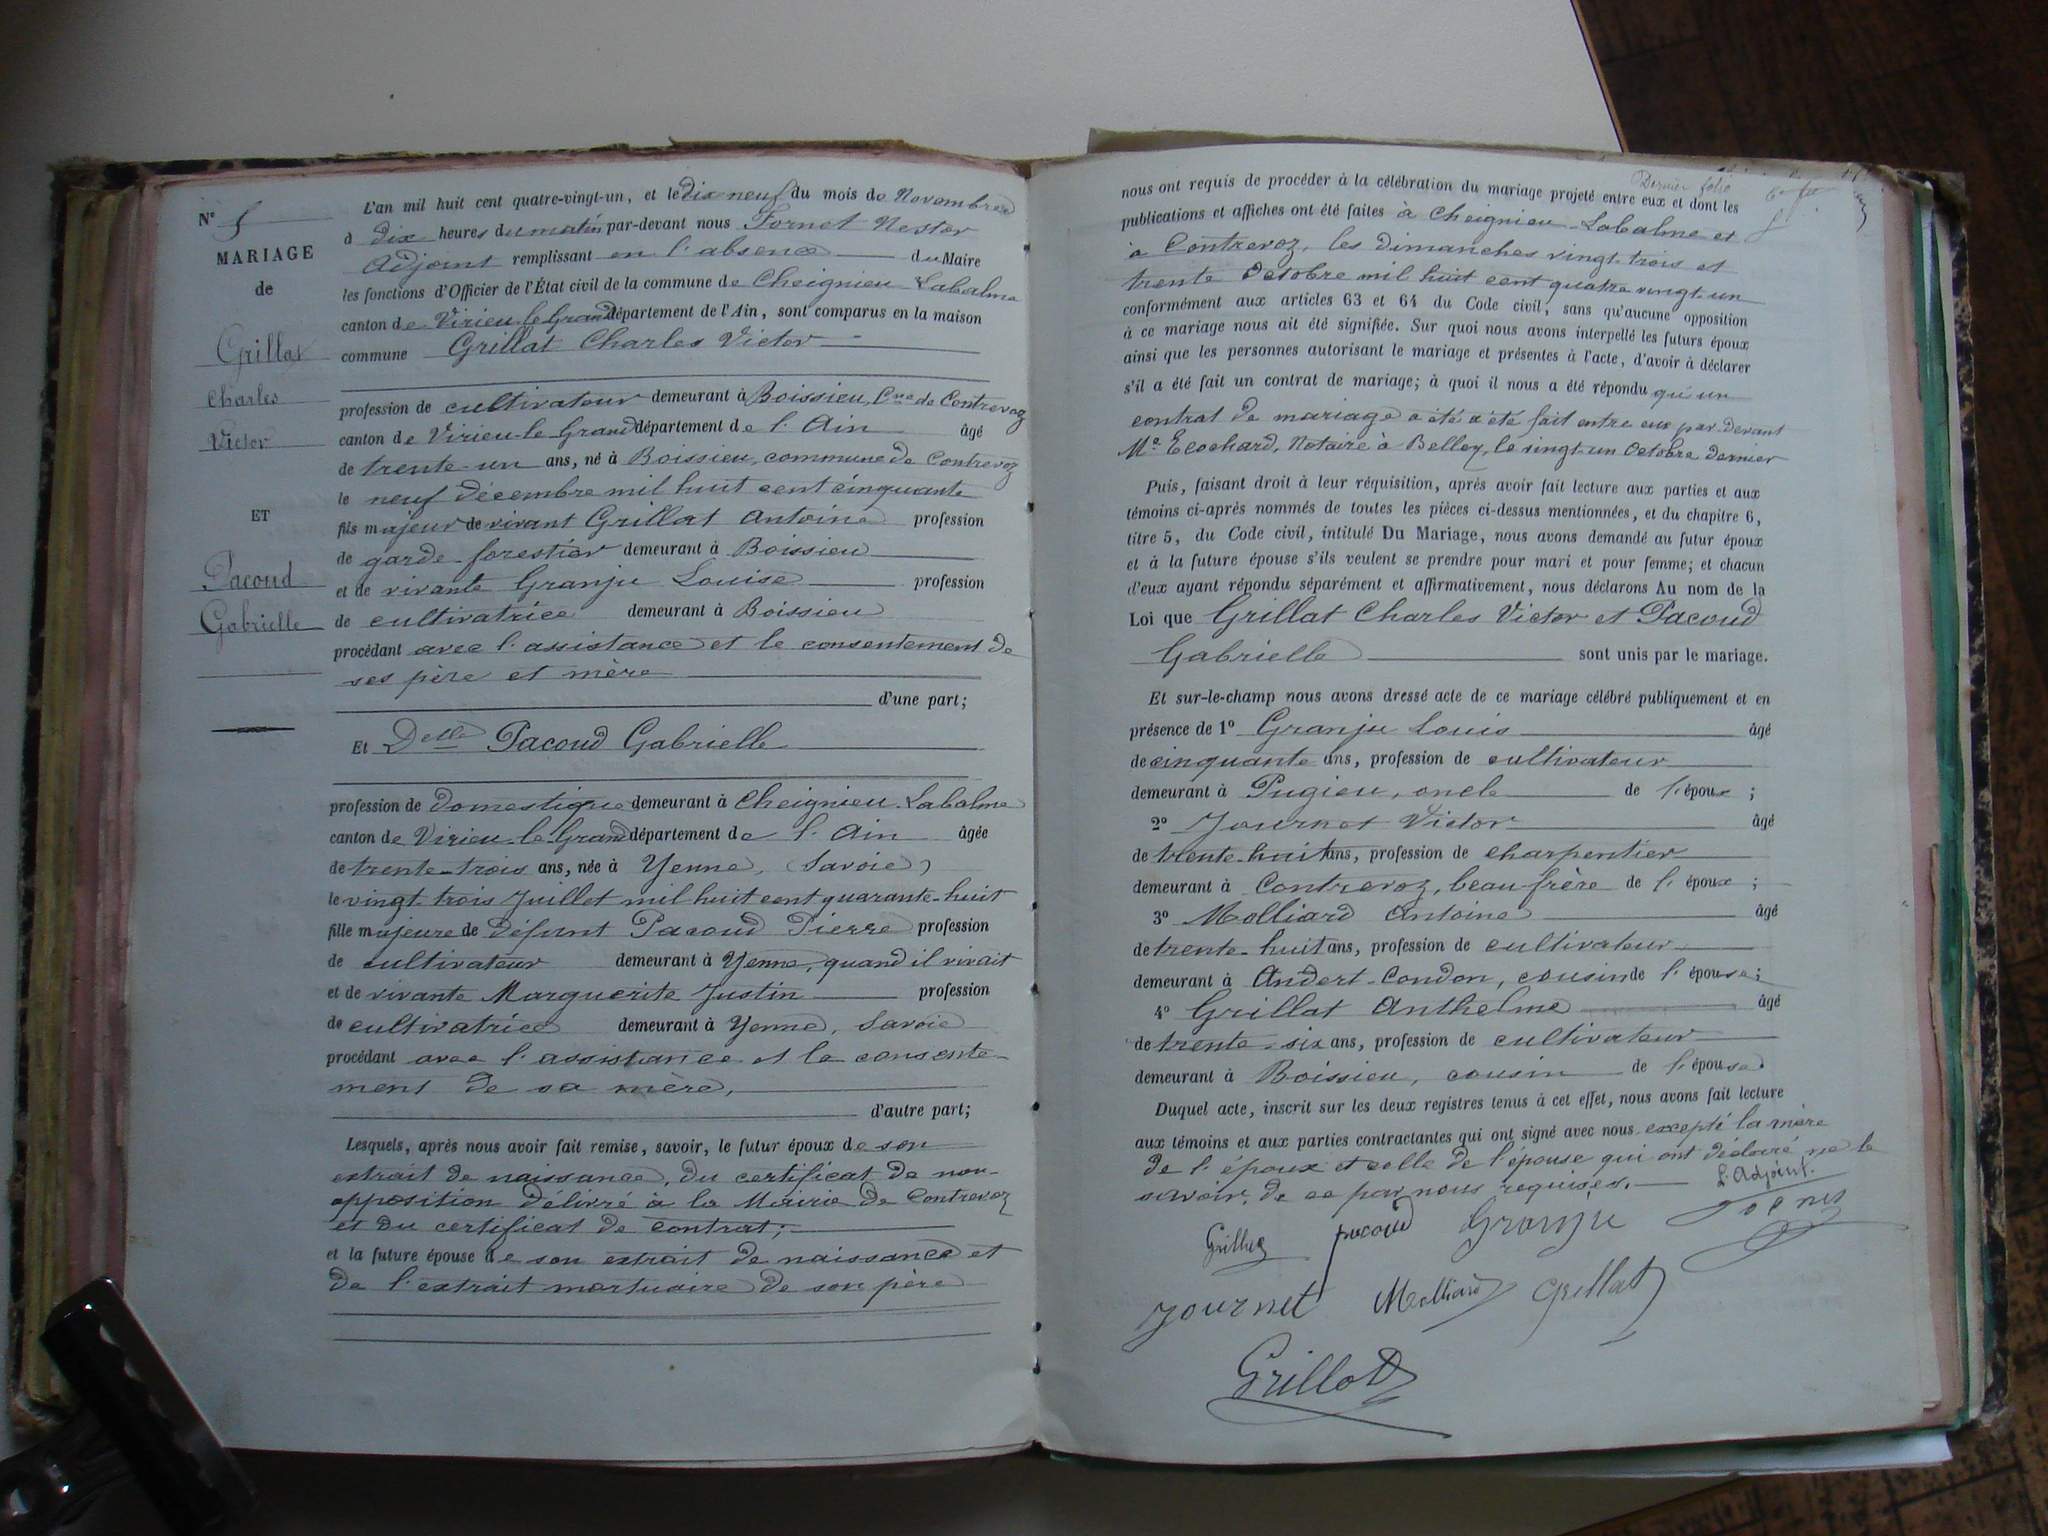 N° 5
MARIAGE
de
Grillat
Charles
Victor
ET
Pacoud
Gabrielle
L'an mil huit cent quatre-vingt-un, et le dix neuf du mois de Novembre
à dix heures du matin par-devant nous Fornet Nestor
Adjoint remplissant en l'absence du Maire
les fonctions d'Officier de l'État civil de la commune de Cheignieu-Labalme
canton de Virieu-le-Grand département de l'Ain, sont comparus en la maison
commune Grillat Charles Victor
profession de cultivateur demeurant à Boissieu, Cne de Contrevoz
canton de Virieu-le-Grand département de l'Ain âgé
de trente-un ans, né à Boissieu, commune de Contrevoz
le neuf décembre mil huit cent cinquante
fils majeur de vivant Grillat Antoine profession
de garde-forestier demeurant à Boissieu
et de vivante Granju Louise profession
de cultivatrice demeurant à Boissieu
procédant avec l'assistance et le consentement de
ses père et mère
d'une part;
Et Delle Pacoud Gabrielle
profession de domestique demeurant à Cheignieu-Labalme
canton de Virieu-le-Grand département de l'Ain âgée
de trente-trois ans, née à Yenne, (Savoie)
le vingt-trois Juillet mil huit cent quarante-huit
fille majeure de défunt Pacoud Pierre profession
de cultivateur demeurant à Yenne, quand il vivait
et de vivante Marguerite Justin profession
de cultivatrice demeurant à Yenne, Savoie
procédant avec l'assistance et le consente-
ment de sa mère,
d'autre part;
Lesquels, après nous avoir fait remise, savoir, le futur époux de son
extrait de naissance, du certificat de non-
opposition délivré à la Mairie de Contrevoz
et du certificat de contrat;
et la future épouse de son extrait de naissance et
de l'extrait mortuaire de son père
Dernier folio
nous ont requis de procéder à la célébration du mariage projeté entre eux et dont les
publications et affiches ont été faites à Cheignieu-Labalme et
à Contrevoz, les dimanches vingt-trois et
trente Octobre mil huit cent quatre vingt-un
conformément aux articles 63 et 64 du Code civil, sans qu'aucune opposition
à ce mariage nous ait été signifiée. Sur quoi nous avons interpellé les futurs époux
ainsi que les personnes autorisant le mariage et présentes à l'acte, d'avoir à déclarer
s'il a été fait un contrat de mariage; à quoi il nous a été répondu qu'un
contrat de mariage a été a été fait entre eux par-devant
Me Ecochard, Notaire à Belley, le vingt-un Octobre dernier
Puis, faisant droit à leur réquisition, après avoir fait lecture aux parties et aux
témoins ci-après nommés de toutes les pièces ci-dessus mentionnées, et du chapitre 6,
titre 5, du Code civil, intitulé Du Mariage, nous avons demandé au futur époux
et à la future épouse s'ils veulent se prendre pour mari et pour femme; et chacun
d'eux ayant répondu séparément et affirmativement, nous déclarons Au nom de la
Loi que Grillat Charles Victor et Pacoud
Gabrielle sont unis par le mariage.
Et sur-le-champ nous avons dressé acte de ce mariage célébré publiquement et en
présence de 1° Granju Louis âgé
de cinquante ans, profession de cultivateur
demeurant à Pugieu, oncle de l'époux;
2° Journet Victor âgé
de trente-huit ans, profession de charpentier
demeurant à Contrevoz, beau-frère de l'époux;
3° Molliard Antoine âgé
de trente-huit ans, profession de cultivateur
demeurant à Andert-Condon, cousin de l'épouse;
4° Grillat Anthelme âgé
de trente-six ans, profession de cultivateur
demeurant à Boissieu, cousin de l'épouse
Duquel acte, inscrit sur les deux registres tenus à cet effet, nous avons fait lecture
aux témoins et aux parties contractantes qui ont signé avec nous excepté la mère
de l'époux et celle de l'épouse qui ont déclaré ne le
savoir, de ce par nous requises.
L'Adjoint.
Grillat pacoud Granju Fornet
Journet Molliard Grillat
Grillat